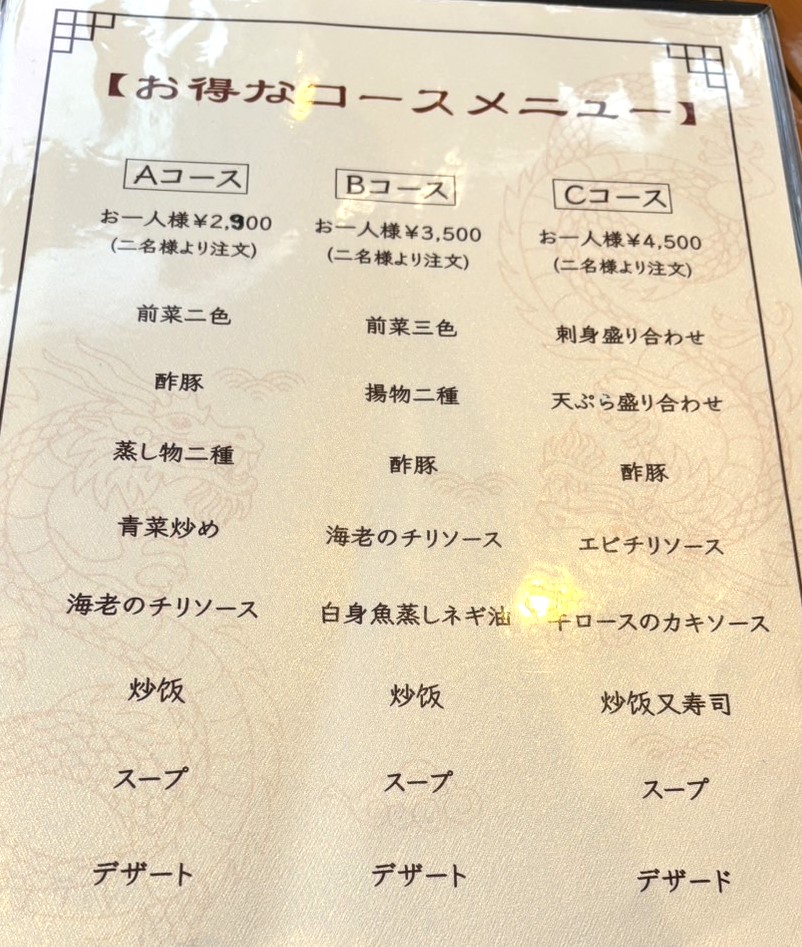 【お得なコースメニュー】
Aコース
お一人様¥2,900
(二名様より注文)
前菜二色
酢豚
蒸し物二種
青菜炒め
海老のチリソース
炒饭
スープ
デザート
Bコース
お一人様¥3,500
(二名様より注文)
前菜三色
揚物二種
酢豚
海老のチリソース
白身魚蒸しネギ油
炒饭
スープ
デザート
Cコース
お一人様¥4,500
(二名様より注文)
刺身盛り合わせ
天ぷら盛り合わせ
酢豚
エビチリソース
牛ロースのカキソース
炒饭又寿司
スープ
デザード